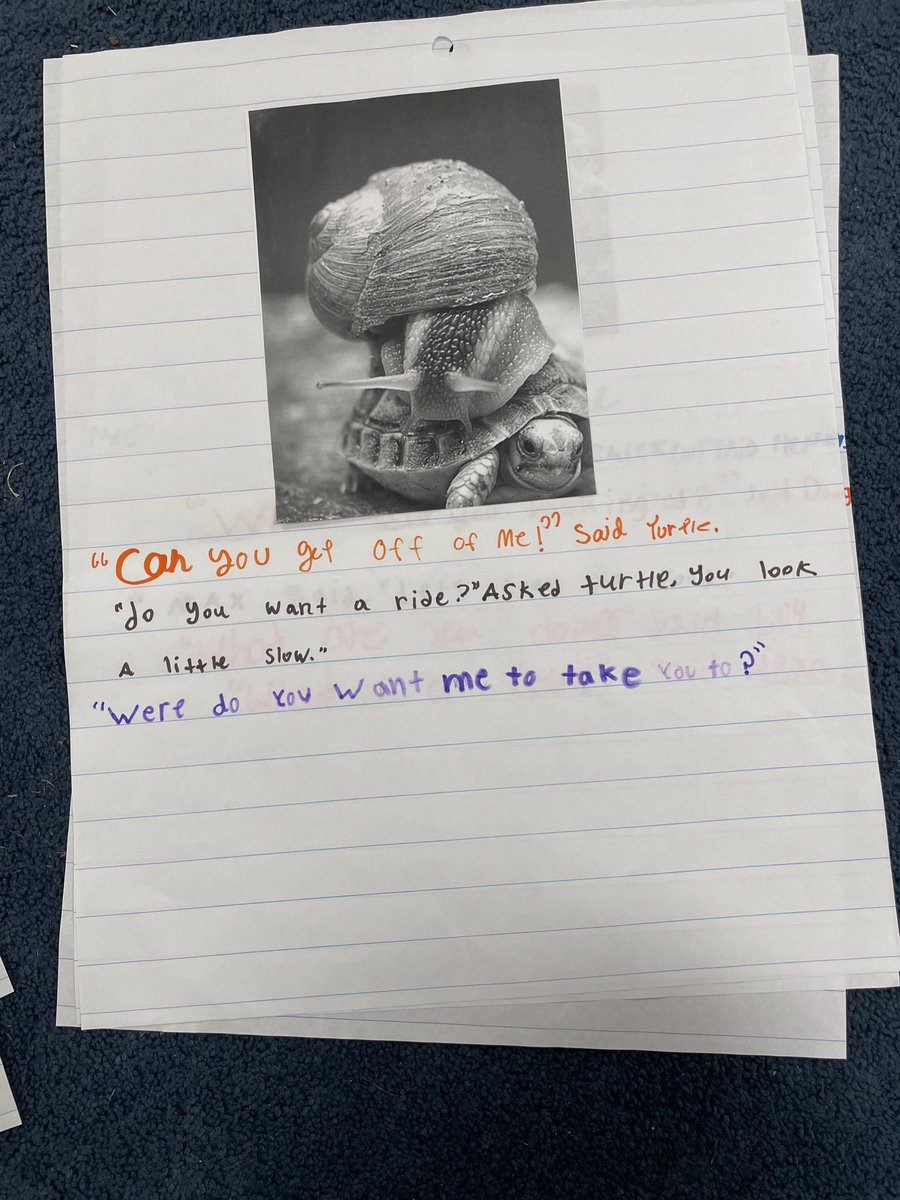 “Can you get off of me!” Said Turtle.
"do you want a ride?" Asked turtle, you look
a little slow."
"Were do you want me to take you to?"